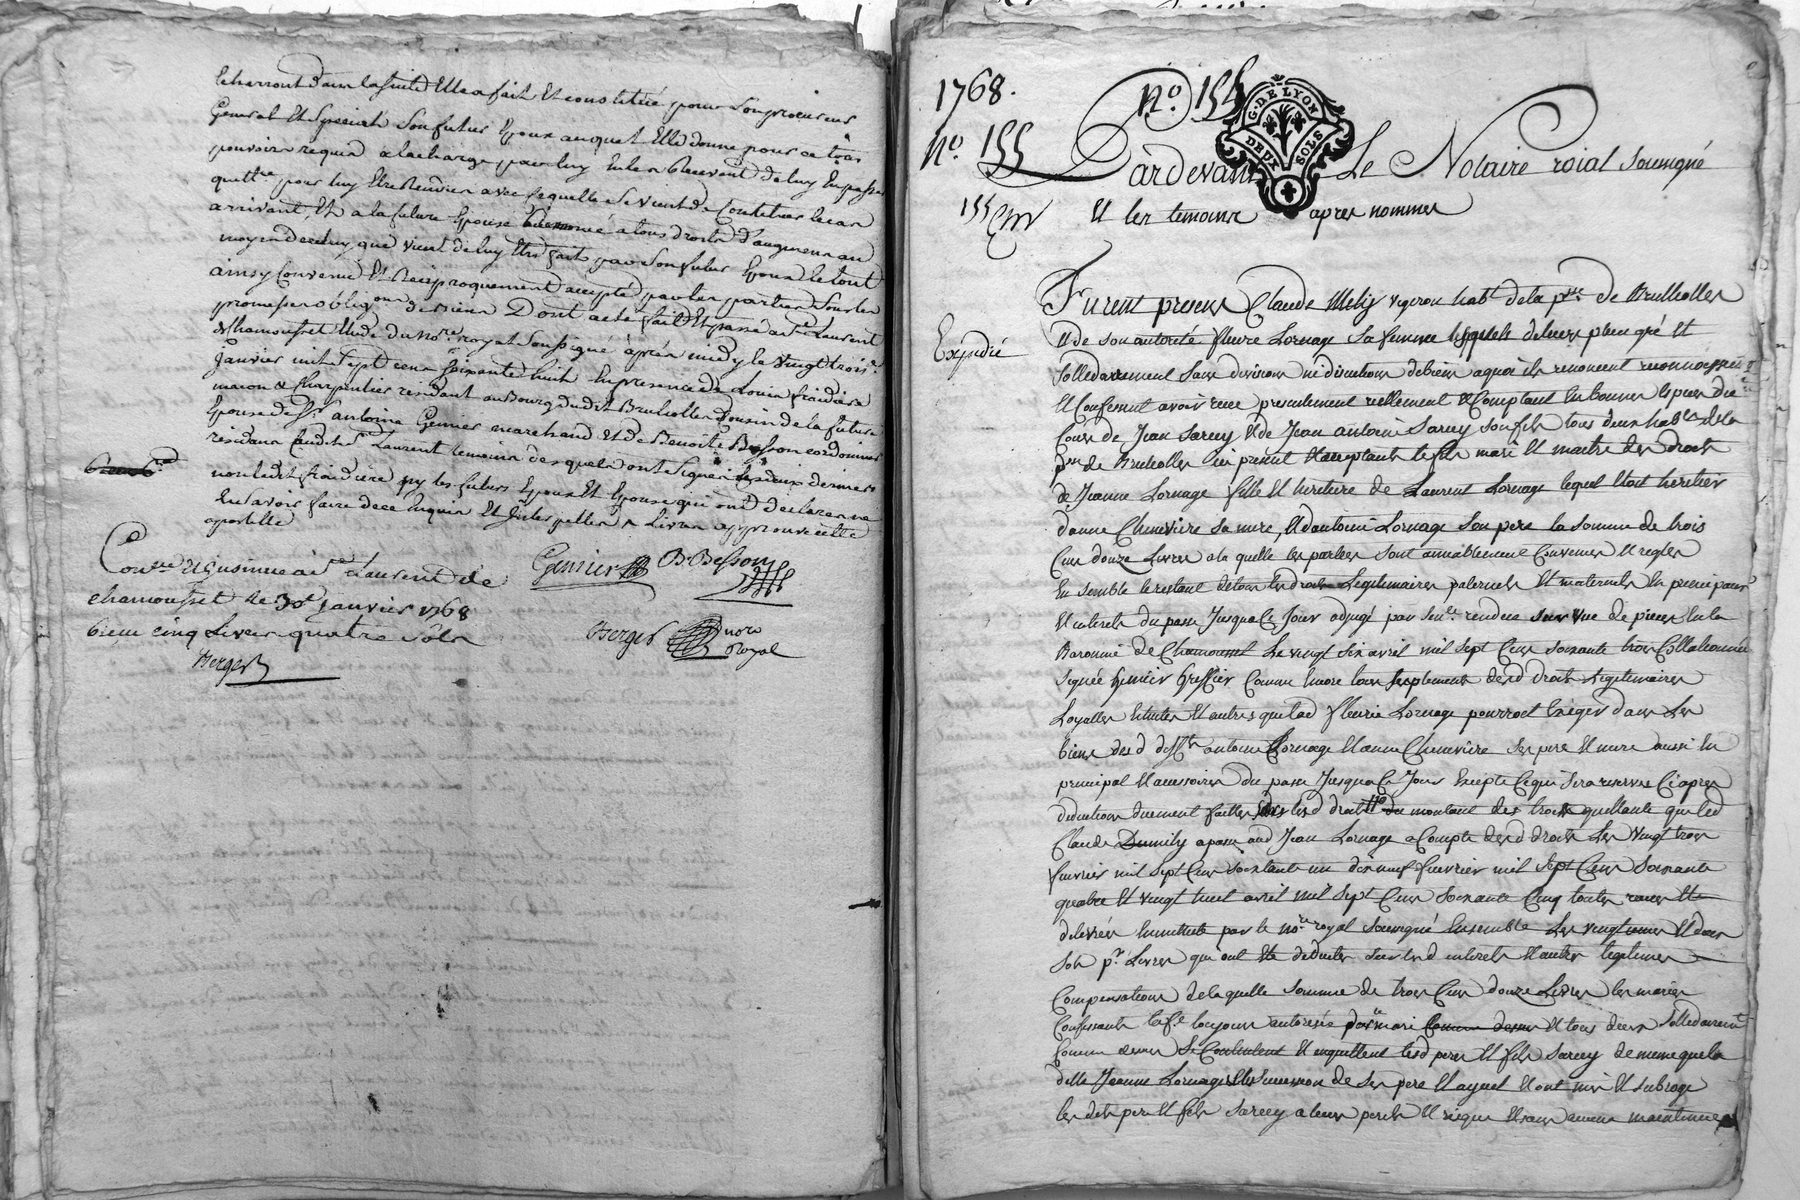 escherront dans la suitte Elle a fait Et constitué pour son procureur
General Et special son futur Epoux auquel Elle donne pour ce tous
pouvoirs requis a la charge par luy En les Recevant de luy En passer
quitce pour luy Etre Rendües avec lesquelles se vient de Constituer le cas
arrivant, Et a la future Epouse a tous droits d'augment au
moyen de celuy que vient de luy Etre fait par son futur Epoux le tout
ainsy convenu Et Reciproquement accepté par les parties sous les
promesses obligons de biens Dont acte fait Et passé a St Laurent
de Chamousset Etude du Nore royal soussigné après midy le vingt trois
Janvier mil sept cens soixante huit En presence de Louis fraidiere
macon & Charpentier residant au Bourg dudit Brullolles Cousin de la future
Epouse de Sr antoine Genier marchand Et de Benoite Besson cordonnier
residans audit St Laurent temoins desquels ont signé les deux derniers
non ledit fraidiere ny les futurs Epoux Et Epouse qui ont declaré ne
le savoir faire de ce Enquis Et Interpellés
apostille
Genier B. Besson
Conlle Et Insinué a St Laurent de
chamousset le 30e Janvier 1768
Reçu cinq Livres quatre sols
Berger
Berger nore Royal
1768.
No 154
No 155
G. DE LYON
DEUX SOLS
Pardevant Le Notaire roial soussigné
155
Et les temoins apres nommés
Expedié
Furent presens Claude Mely vigneron habt de la psse de Brullolles
Et de son autorité fleurie Lornage sa femme lesquels de leurs plein gré Et
sollidairement sans division ni discution de biens a quoi ils renoncent reconnoissent
Et Confessent avoir reçu presentement reellement Et Comptant En bonnes Especes du
Cours de Jean Sarcey Et de Jean antoine Sarcey son fils tous deux habts de la
psse de Brullolles ici present Et acceptants le fils mari Et maitre des droits
de Jeanne Lornage fille Et heritiere de Laurent Lornage lequel Etoit heritier
danne Chenevière sa mere, Et dantoine Lornage son pere la somme de trois
Cens douze Livres a la quelle les parties sont amiablement Convenues Et reglés
Ensemble le restant de tous les droits Legitimaires paternels Et maternels En principaux
Et interets du passé Jusqua Ce Jour adjugé par Sence rendue sur vue de pieces En la
Baronnie de Chamousset Le vingt six avril mil sept Cens soixante trois Collationnée
signée Genier Greffier Comme Encore tous suplements desd droits Legitimaires
Loyalles Echutes Et autres que lad fleurie Lornage pourroit Exiger dans les
biens desd deffts antoine Lornage Et anne Chenevière ses pere Et mere aussi En
principal Et accessoires du passé Jusqua Ce Jour Excepté Ce qui sera reservé Ci apres
deductions duement faittes du montant des trois quittances que led
Claude Dumily a passé aud Jean Lornage a Compte desd droits les vingt trois
fevrier mil sept Cens soixante un dix neuf fevrier mil sept Cens soixante
quatre Et vingt huit avril mil sept Cens soixante Cinq toutes recues Et
delivrées En minute par le nore royal soussigné Ensemble Les vingtiemes Et deux
sols pr Livres qui ont Eté deduites sur lesd interets Et autres legitimes
Compensations de laquelle somme de trois Cens douze Livres les mariés
Confessants lad fe toujours autorisée de son mari Et tous deux sollidairement
Comme dessus se Contentent Et en quittent lesd pere Et fils Sarcey de meme que la
ditte Jeanne Lornage Et la succession de ses pere Et ayeul Et ont mis Et subrogé
les dits pere Et fils Sarcey a leurs perils Et risques Et sans aucune maintenue